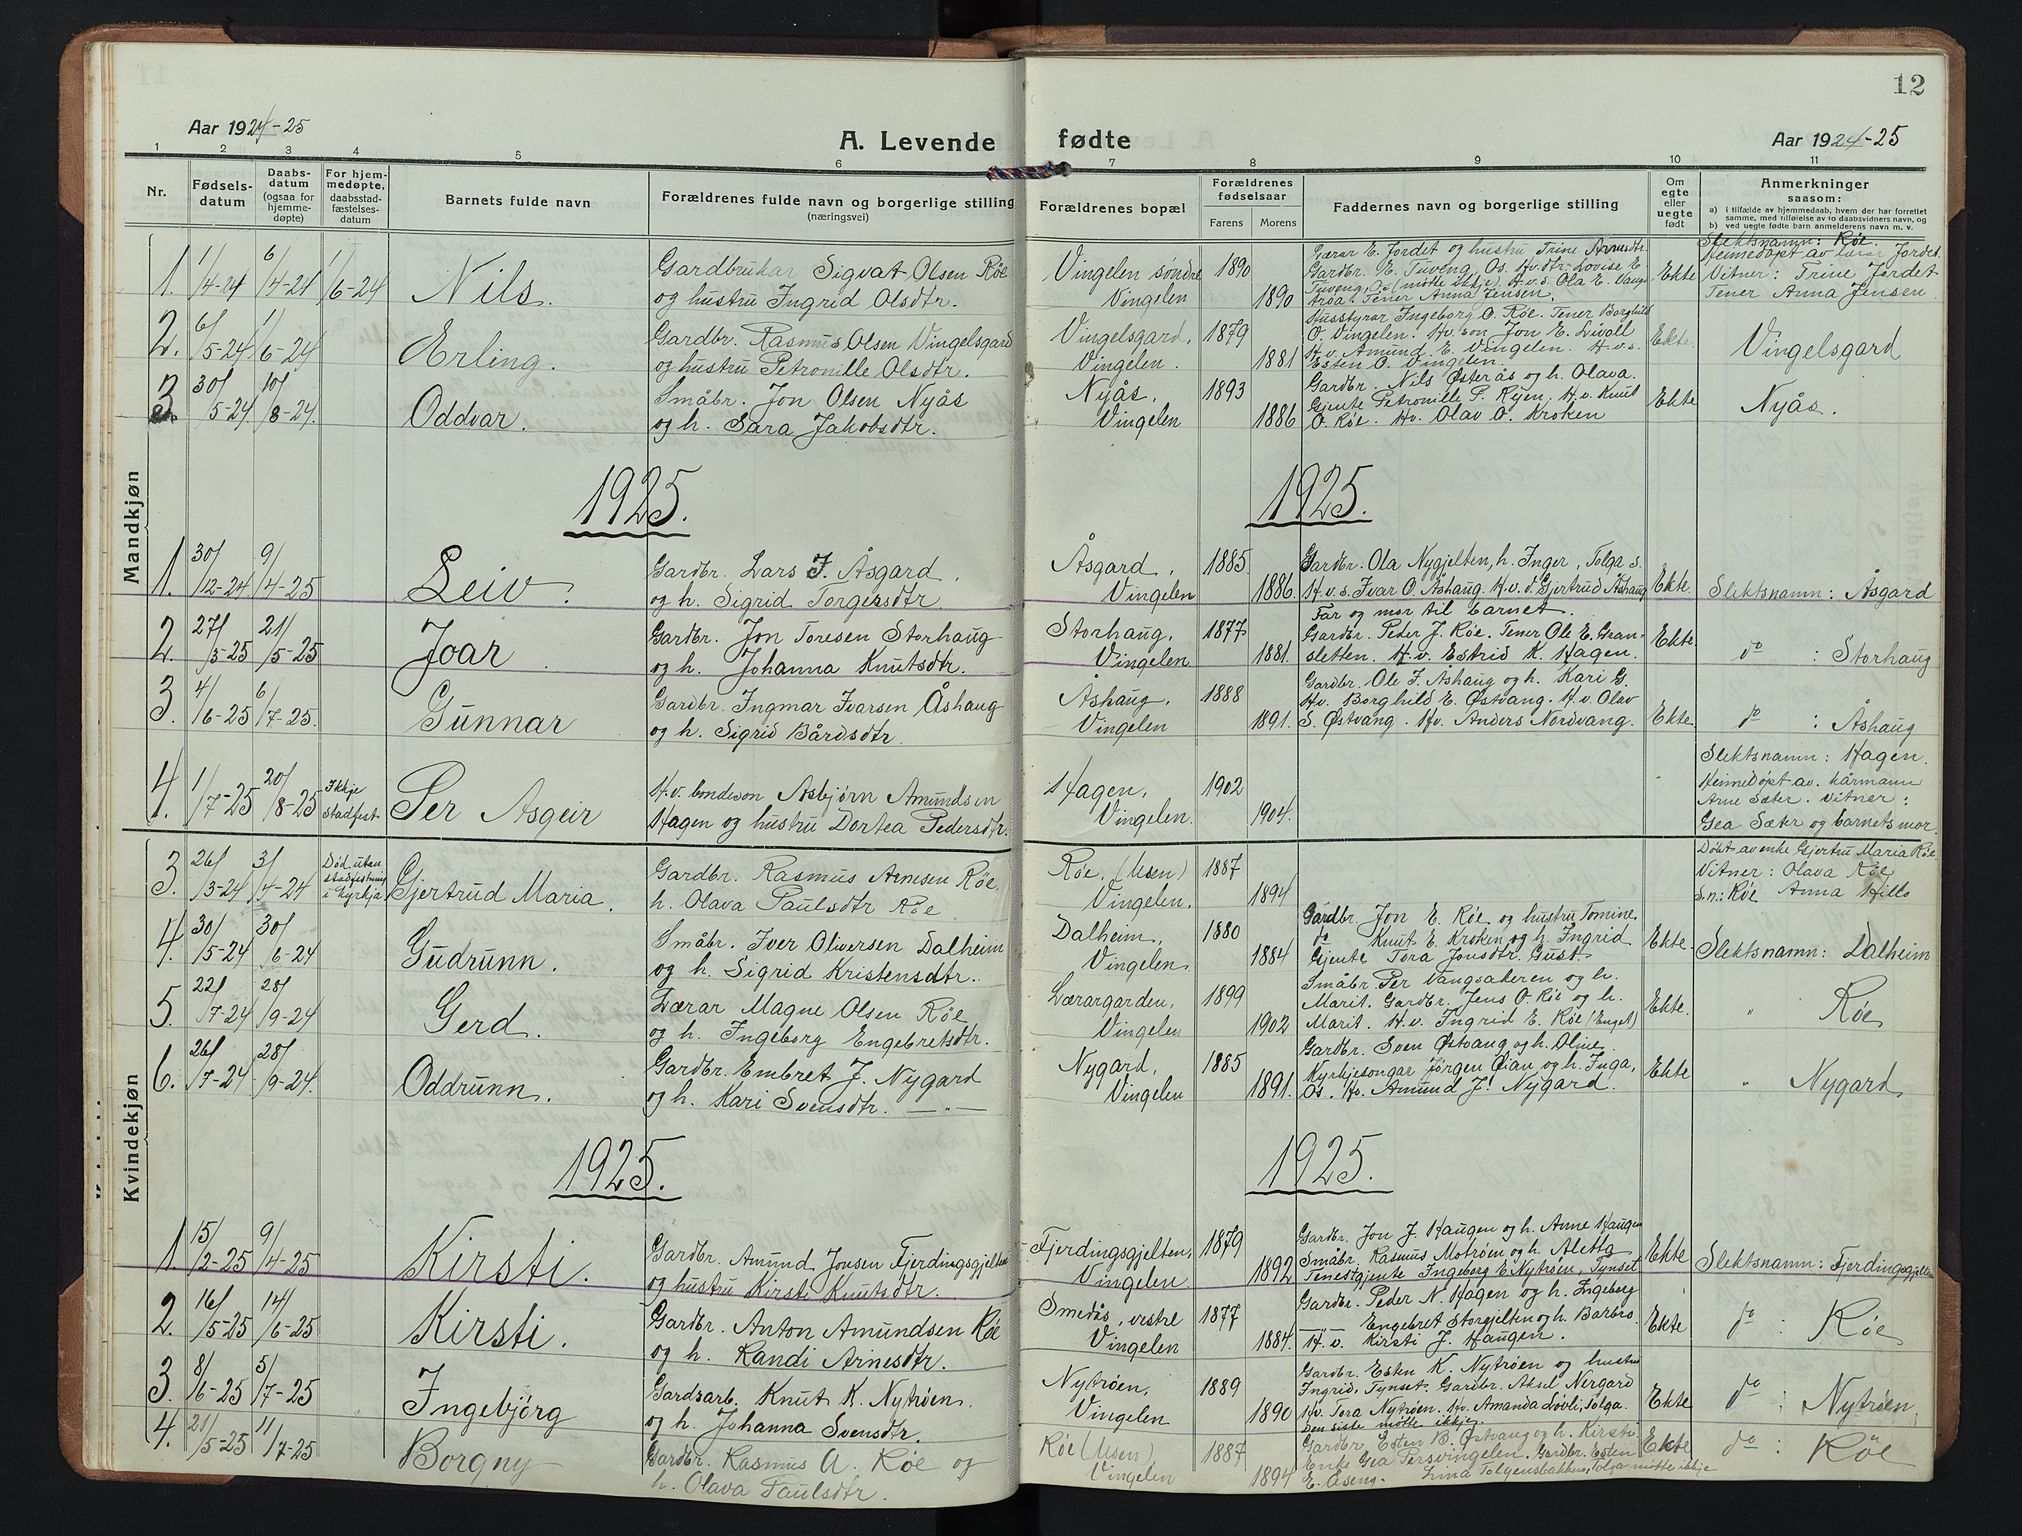 12
Aar 1924-25
A. Levende fødte
Aar 1924-25
1 2 3 4 5 6 7 8 9 10 11
Nr.
Fødselsdatum
Daabsdatum (ogsaa for hjemmedøpte)
For hjemmedøpte, daabsstadfæstelsesdatum
Barnets fulde navn
Forældrenes fulde navn og borgerlige stilling (næringsvei)
Forældrenes bopæl
Forældrenes fødselsaar
Farens
Morens
Faddernes navn og borgerlige stilling
Om egte eller uegte født
Anmerkninger saasom:
a) i tilfælde av hjemmedaab, hvem der har forrettet samme, med tilføielse av to daabsvidners navn, og
b) ved uegte fødte barn anmelderens navn m. v.
Mandkjøn
1. 1/4-24 6/4-24 1/6-24 Nils.
Gardbrukar Sigvat Olsen Røe
og hustru Ingrid Olsdtr.
Vingelen søndre
Vingelen
1890
1890
Lærar E. Jordet og hustru Trine Arnesdtr.
Gardbr. E. Tuveng, Os. Hv.dtr. Lovise E
Tuveng, Os (møtte ikkje). H.v.s. Ola E. Vang-
Arøa. Tener Anna Jensen.
Ekte
Slektsnamn: Røe.
Heimedøpt av lærar Jordet.
Vitner: Trine Jordet
Tener Anna Jensen
2. 6/5-24 1/6-24 Erling.
Gardbr. Rasmus Olsen Vingelsgard
og hustru Petronille Olsdtr.
Vingelsgard,
Vingelen.
1879
1881
Husstyrar Ingeborg O. Røe. Tener Borghild
O. Vingelen. Hv. son Jon E. Livoll
H.v. Amund E. Vingelen. H.v.s.
Esten O. Vingelen.
Ekte
Vingelsgard
3. 30/5-24 10/8-24. Oddvar.
Småbr. Jon Olsen Nyås
og h. Sara Jakobsdtr.
Nyås,
Vingelen
1893
1886
Gardbr. Nils Østerås og h. Olava.
Gjente Petronille P. Ryen. H.v. Knut
O. Røe. Hv. Olav O. Kroken
Ekte
Nyås.
1925.
1925.
1. 30/12-24 9/4-25 Leiv.
Gardbr. Lars J. Åsgard,
og h. Sigrid Torgersdtr.
Åsgard,
Vingelen
1885
1886.
Gardbr. Ola Nygjelten, h. Inger, Tolga s.
H.v.s. Ivar O. Åshaug. H.v.d. Gjertrud Åshaug
Far og mor til barnet.
Ekte
Slektsnamn: Åsgard
2. 27/3-25 21/5-25 Joar
Gardbr. Jon Toresen Storhaug
og h. Johanna Knutsdtr.
Storhaug,
Vingelen
1877
1881.
Gardbr. Peder J. Røe. Tener Ole E. Gran-
sletten. H.v. Estrid K. Hagen.
Ekte
do : Storhaug
3. 4/6-25 6/7-25. Gunnar
Gardbr. Ingmar Ivarsen Åshaug
og h. Sigrid Bårdsdtr.
Åshaug,
Vingelen
1888
1891.
Gardbr. Ole I. Åshaug og h. Kari G.
Hv. Borghild E. Østvang. H.v. Olav
S. Østvang. Hv. Anders Nordvang.
Ekte
do : Åshaug
4. 1/7-25 20/8-25 Ikkje stadfest. Per Asgeir
H.v. bondeson Asbjørn Amundsen
Hagen og hustru Dortea Pedersdtr.
Hagen,
Vingelen.
1902
1904.
Slektsnamn: Hagen.
Heimedøpt av hårmann
Arne Sæter. Vitner:
Gea Sæter og barnets mor.
Kvindekjøn
3. 26/3-24 3/4-24 Død utan stadfestning i kyrkja Gjertrud Maria.
Gardbr. Rasmus Arnesen Røe,
h. Olava Paulsdtr Røe
Røe, (Usen)
Vingelen.
1887
1894
Døbt av enke Gjertru Maria Røe,
Vitner: Olava Røe
S.n: Røe Anna Hills
4. 30/5-24 30/6-24 Gudrunn.
Småbr. Iver Oliversen Dalheim
og h. Sigrid Kristensdtr.
Dalheim,
Vingelen.
1880
1884
Gardbr. Jon E. Røe og hustru Tomine,
do Knut E. Kroken og h. Ingrid
Gjente Tora Jonsdtr. Gust.
Ekte
Slektsnamn: Dalheim
5. 22/7-24 28/9-24 Gerd.
Lærar Magne Olsen Røe
og h. Ingeborg Engebretsdtr.
Lærargarden,
Vingelen
1899
1902
Småbr. Per Vangsakeren og h.
Marit. Gardbr. Jens O. Røe og h.
Marit. H.v. Ingrid E. Røe (Enget)
Ekte.
" Røe
6. 26/7-24 28/9-24. Oddrunn.
Gardbr. Embret J. Nygard
og h. Kari Svensdtr. — " —
Nygard,
Vingelen
1885
1891.
Gardbr. Sven Østvang og h. Oline.
Kyrkjesongar Jørgen Øian og h. Inga,
Os. Hv. Amund J. Nygard.
Ekte
" Nygard
1925.
1925.
1. 15/2-25 9/4-25 Kirsti.
Gardbr. Amund Jonsen Fjerdingsgjelten
og hustru Kirsti Knutsdtr.
Fjerdingsgjelten,
Vingelen
1879
1892
Gardbr. Jon J. Haugen og h. Arne Haugen
Småbr. Rasmus Motrøen og h. Aletta
Tenestgjente Ingeborg E. Nytrøen, Tynset
Ekte
Slektsnamn: Fjerdingsgjelten
2. 16/5-25 14/6-25 Kirsti.
Gardbr. Anton Amundsen Røe
og h. Randi Arnesdtr.
Smedås, vestre
Vingelen
1877
1884.
Gardbr. Peder N. Hagen og h. Ingeberg
Engebret Storgjelten og h. Barbro
H.v. Kirsti J. Haugen.
Ekte
do : Røe
3. 8/6-25 5/7-25 Ingebjørg
Gardsarb. Knut K. Nytrøen.
og h. Johanna Svensdtr.
Nytrøen,
Vingelen
1889
1890
Gardbr. Esten K. Nytrøen og hustru
Ingrid, Tynset. Gardbr. Aksel Nergard
Hv. Tora Nytrøen. Hv. Amanda Løvli, Tolga.
Den siste møtte ikkje.
Ekte
do : Nytrøen,
4. 21/5-25 11/7-25 Borgny
Gardbr. Rasmus A. Røe og
h. Olava Paulsdtr.
Røe (Usen)
Vingelen
1887
1894
Gardbr. Esten B. Østvang og h. Kirsti
Enke Gea Persvingelen. Gardbr. Esten
E. Eseng. Lina Tolgensbakken, Tolga møtte ikkje
Ekte
do : Røe